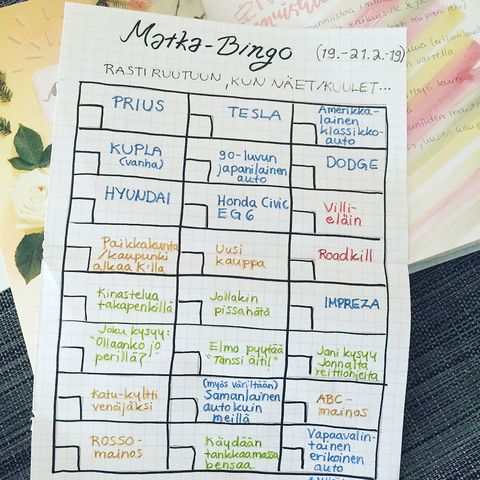 Matka-Bingo (19.-21.2.-19)
RASTI RUUTUUN, KUN NÄET/KUULET...
PRIUS
TESLA
Amerikka-
lainen
klassikko-
auto
KUPLA
(vanha)
90-luvun
japanilainen
auto
DODGE
HYUNDAI
Honda Civic
EG6
Villi-
eläin
Paikkakunta
/kaupunki
alkaa K:lla
Uusi
kauppa
Roadkill
Kinastelua
takapenkillä
Jollakin
pissahätä
IMPREZA
Joku kysyy:
"Ollaanko jo
perillä?"
Elmo pyytää
"Tanssi äiti!"
Jani kysyy
Jonnalta
reittiohjeita
Katu-kyltti
venäjäksi
(myös väriltään)
Samanlainen
auto kuin
meillä
ABC-
mainos
ROSSO-
mainos
Käydään
tankkaamassa
bensaa
Vapaavalin-
tainen
erikoinen
auto